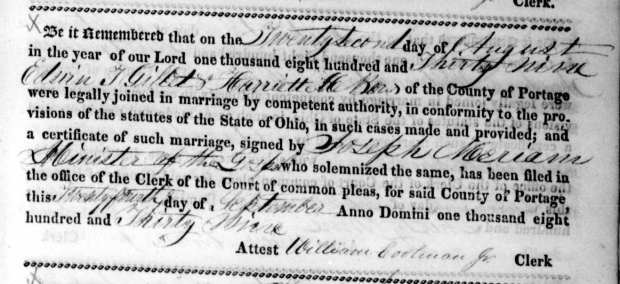 Clerk.
Be it Remembered that on the Twenty second day of August
in the year of our Lord one thousand eight hundred and Thirty nine
Edwin T Gillet & Harriett of the County of Portage
were legally joined in marriage by competent authority, in conformity to the pro-
visions of the statutes of the State of Ohio, in such cases made and provided; and
a certificate of such marriage, signed by Joseph Meriam
Minister of the Gospel who solemnized the same, has been filed in
the office of the Clerk of the Court of common pleas, for said County of Portage,
this day of September Anno Domini one thousand eight
hundred and Thirty Nine
Attest William Coolman Jr Clerk